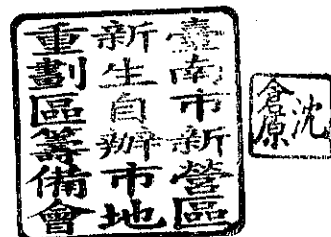 臺南市新營區
新生自辦市地
重劃區籌備會
沈
倉原